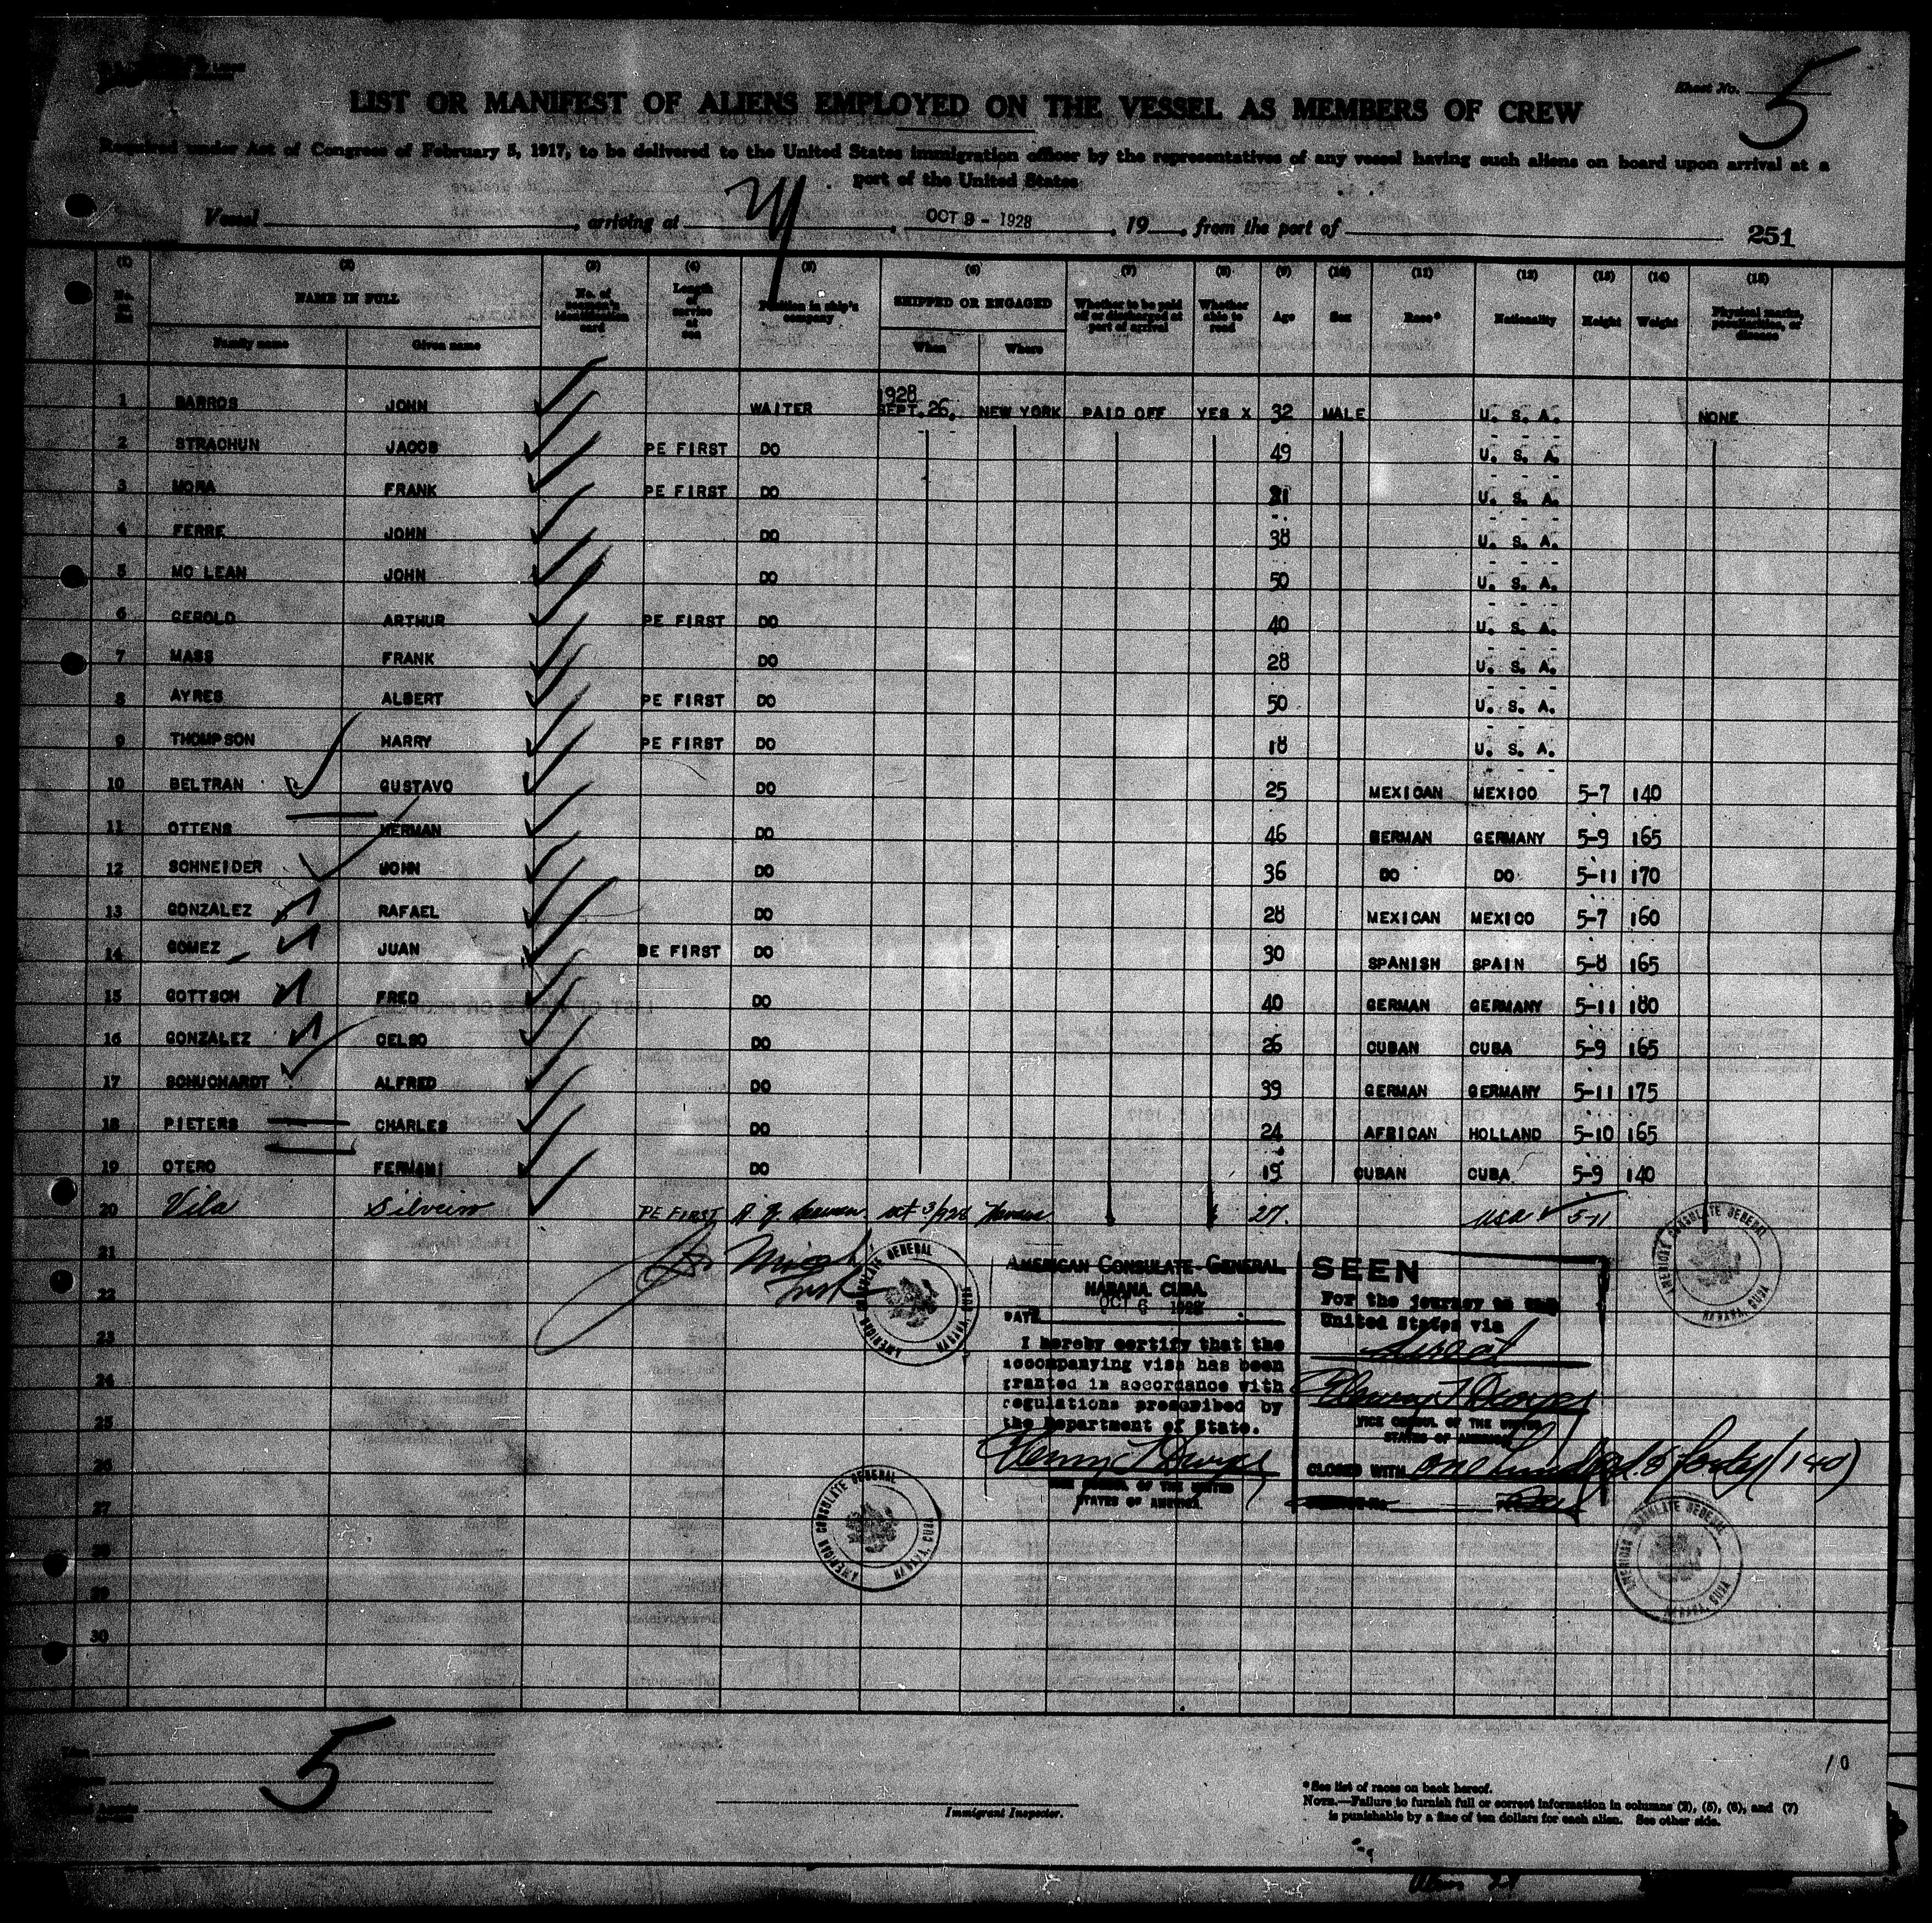 Sheet No. 5
LIST OR MANIFEST OF ALIENS EMPLOYED ON THE VESSEL AS MEMBERS OF CREW
Required under Act of Congress of February 5, 1917, to be delivered to the United States immigration officer by the representatives of any vessel having such aliens on board upon arrival at a
port of the United States
Vessel , arriving at , OCT 9 - 1928 , 19 , from the port of
251
(1) (2) (3) (4) (5) (6) (7) (8) (9) (10) (11) (12) (13) (14) (15)
No. on list NAME IN FULL Family name Given name No. of seaman's identification card Length of service at sea Position in ship's company SHIPPED OR ENGAGED When Where Whether to be paid off or discharged at port of arrival Whether able to read Age Sex Race* Nationality Height Weight Physical marks, peculiarities, or disease
1 BARROS JOHN WAITER 1928 SEPT. 26. NEW YORK PAID OFF YES X 32 MALE U. S. A. NONE
2 STRACHUN JACOB PE FIRST DO 49 U. S. A.
3 MORA FRANK PE FIRST DO 21 U. S. A.
4 FERRE JOHN DO 38 U. S. A.
5 MO LEAN JOHN DO 50 U. S. A.
6 GEROLD ARTHUR PE FIRST DO 40 U. S. A.
7 MASS FRANK DO 28 U. S. A.
8 AYRES ALBERT PE FIRST DO 50 U. S. A.
9 THOMPSON HARRY PE FIRST DO 18 U. S. A.
10 BELTRAN GUSTAVO DO 25 MEXICAN MEXICO 5-7 140
11 OTTENS HERMAN DO 46 GERMAN GERMANY 5-9 165
12 SCHNEIDER JOHN DO 36 DO DO 5-11 170
13 GONZALEZ RAFAEL DO 28 MEXICAN MEXICO 5-7 160
14 GOMEZ JUAN PE FIRST DO 30 SPANISH SPAIN 5-8 165
15 GOTTSCH FRED DO 40 GERMAN GERMANY 5-11 180
16 GONZALEZ CELSO DO 26 CUBAN CUBA 5-9 165
17 SCHUCHARDT ALFRED DO 39 GERMAN GERMANY 5-11 175
18 PIETERS CHARLES DO 24 AFRICAN HOLLAND 5-10 165
19 OTERO FERMANI DO 19 CUBAN CUBA 5-9 140
20 Vila Silveiro PE FIRST Oct 3/928 Havana 27. USA 5-11
21
22
23
24
25
26
27
28
29
30
AMERICAN CONSULATE GENERAL
HABANA, CUBA.
DATE OCT 6 1928
I hereby certify that the
accompanying visa has been
granted in accordance with
regulations prescribed by
the Department of State.
VICE CONSUL OF THE UNITED
STATES OF AMERICA
SEEN
For the journey to the
United States via
direct
VICE CONSUL OF THE UNITED
STATES OF AMERICA
CLOSED WITH one hundred & forty (140)
AMERICAN CONSULATE GENERAL HAVANA, CUBA
AMERICAN CONSULATE GENERAL HAVANA, CUBA
AMERICAN CONSULATE GENERAL HAVANA, CUBA
AMERICAN CONSULATE GENERAL HAVANA, CUBA
5
10
Immigrant Inspector.
*See list of races on back hereof.
NOTE.—Failure to furnish full or correct information in columns (2), (5), (6), and (7)
is punishable by a fine of ten dollars for each alien. See other side.